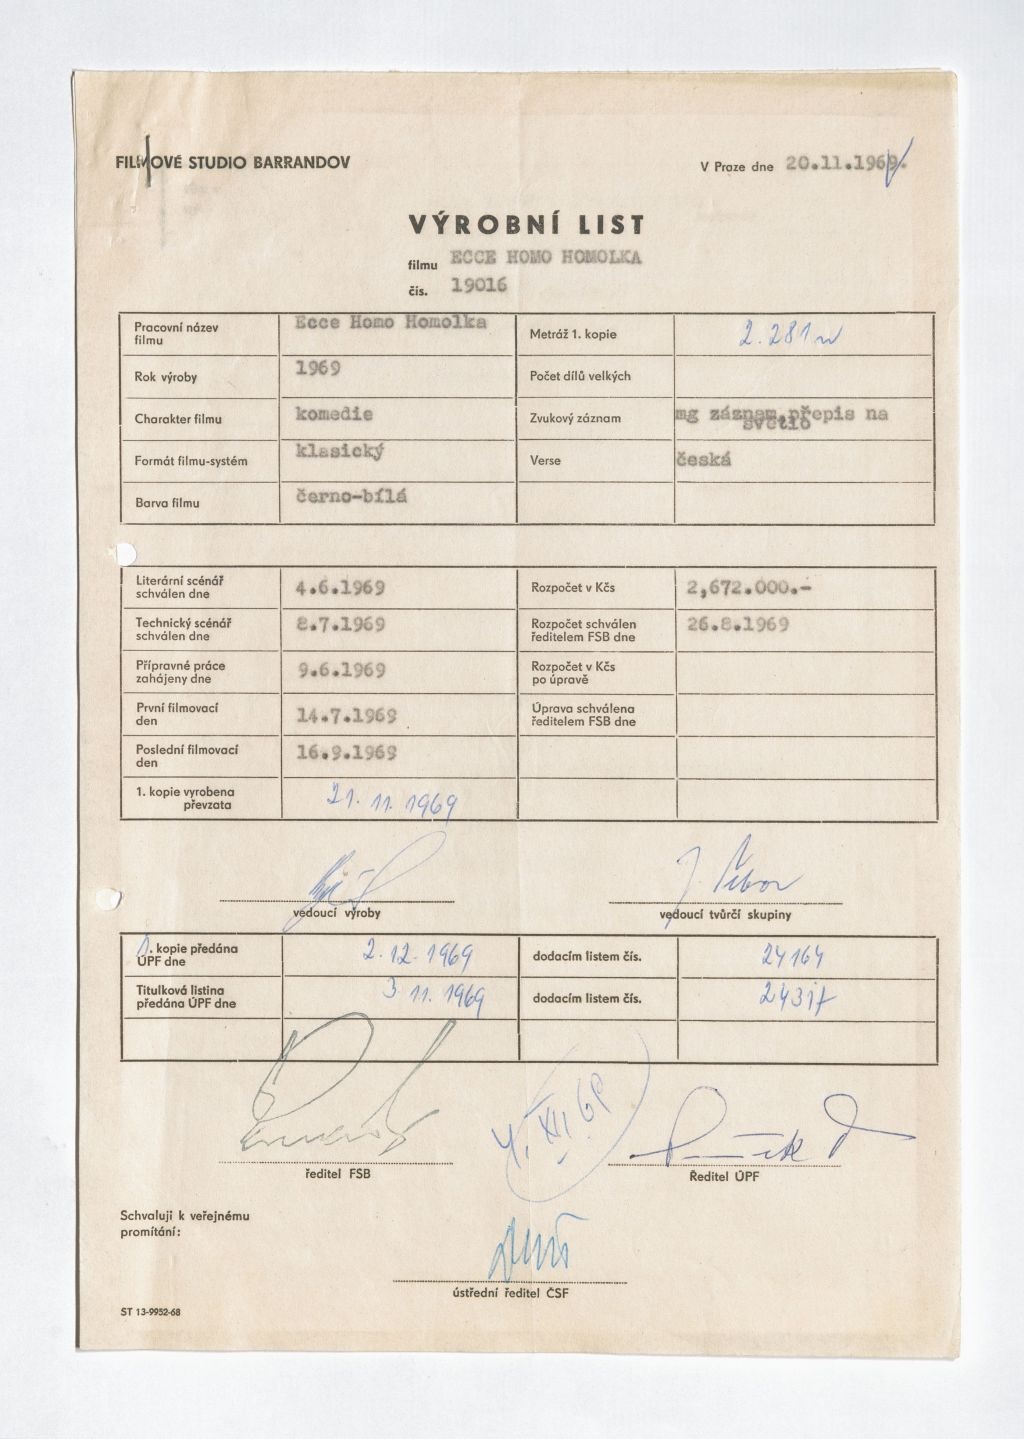 FILMOVÉ STUDIO BARRANDOV
V Praze dne 20.11.1969.
VÝROBNÍ LIST
filmu ECCE HOMO HOMOLKA
čís. 19016
Pracovní název filmu Ecce Homo Homolka
Metráž 1. kopie 2.281 m
Rok výroby 1969
Počet dílů velkých
Charakter filmu komedie
Zvukový záznam mg záznam,přepis na světlo
Formát filmu-systém klasický
Verse česká
Barva filmu černo-bílá
Literární scénář schválen dne 4.6.1969
Rozpočet v Kčs 2,672.000.-
Technický scénář schválen dne 8.7.1969
Rozpočet schválen ředitelem FSB dne 26.8.1969
Přípravné práce zahájeny dne 9.6.1969
Rozpočet v Kčs po úpravě
První filmovací den 14.7.1969
Úprava schválena ředitelem FSB dne
Poslední filmovací den 16.9.1969
1. kopie vyrobena převzata 21. 11. 1969
J. Šebor
vedoucí výroby
vedoucí tvůrčí skupiny
1. kopie předána ÚPF dne 2. 12. 1969
dodacím listem čís. 24164
Titulková listina předána ÚPF dne 3 11. 1969
dodacím listem čís. 24317
4. XII. 69
ředitel FSB
Ředitel ÚPF
Schvaluji k veřejnému
promítání:
ústřední ředitel ČSF
ST 13-9952-68